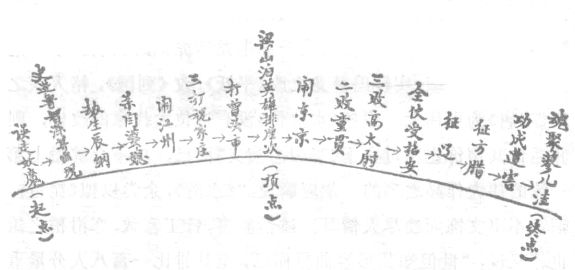 误走妖魔(起点)
史进鲁智深等出现
劫生辰纲
杀闫婆惜
闹江州
三打祝家庄
打曾头市
梁山泊英雄排座次(顶点)
闹东京
二败童贯
三败高太尉
全伙受招安
征辽
征方腊
功成遭害
魂聚蓼儿洼(终点)